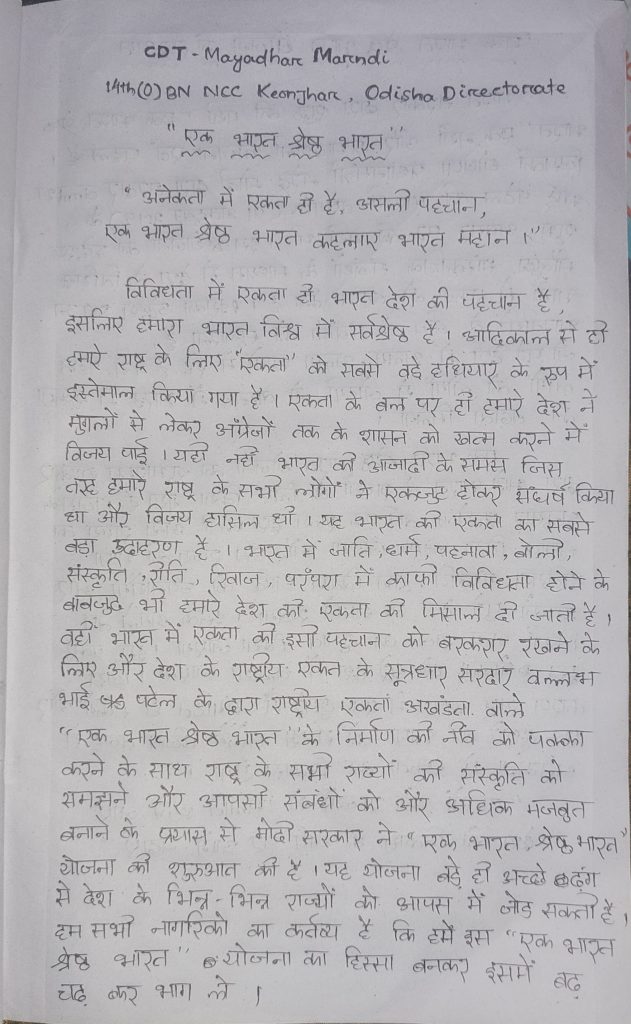 CDT - Mayadhar Marndi
14th(O) BN NCC Keonjhar, Odisha Directorate
"एक भारत श्रेष्ठ भारत"
"अनेकता में एकता ही है, असली पहचान,
एक भारत श्रेष्ठ भारत कहलाए भारत महान।"
विविधता में एकता ही भारत देश की पहचान है,
इसलिए हमारा भारत विश्व में सर्वश्रेष्ठ है। आदिकाल से ही
हमारे राष्ट्र के लिए "एकता" को सबसे बड़े हथियार के रूप में
इस्तेमाल किया गया है। एकता के बल पर ही हमारे देश ने
मुगलों से लेकर अंग्रेजों तक के शासन को खत्म करने में
विजय पाई। यही नहीं भारत की आजादी के समस जिस
तरह हमारे राष्ट्र के सभी लोगों ने एकजुट होकर संघर्ष किया
था और विजय हासिल थी। यह भारत की एकता का सबसे
बड़ा उदाहरण है। भारत में जाति, धर्म, पहनावा, बोली,
संस्कृति, रीति, रिवाज, परंपरा में काफी विविधता होने के
बाबजुद भी हमारे देश की एकता की मिसाल दी जाती है।
वहीं भारत में एकता की इसी पहचान को बरकरार रखने के
लिए और देश के राष्ट्रीय एकत के सूत्रधार सरदार वल्लभ
भाई पटेल के द्वारा राष्ट्रीय एकता अखंडता वाले
"एक भारत श्रेष्ठ भारत" के निर्माण की नींव को पक्का
करने के साथ राष्ट्र के सभी राज्यों की संस्कृति को
समझने और आपसी संबंधों को और अधिक मजबुत
बनाने के प्रयास से मोदी सरकार ने "एक भारत श्रेष्ठ भारत"
योजना की शुरुआत की है। यह योजना बड़े ही अच्छे ढंग
से देश के भिन्न-भिन्न राज्यों को आपस में जोड़ सकती है,
हम सभी नागरिको का कर्तव्य है कि हमें इस "एक भारत
श्रेष्ठ भारत" योजना का हिस्सा बनकर इसमें बढ़
चढ़ कर भाग ले।